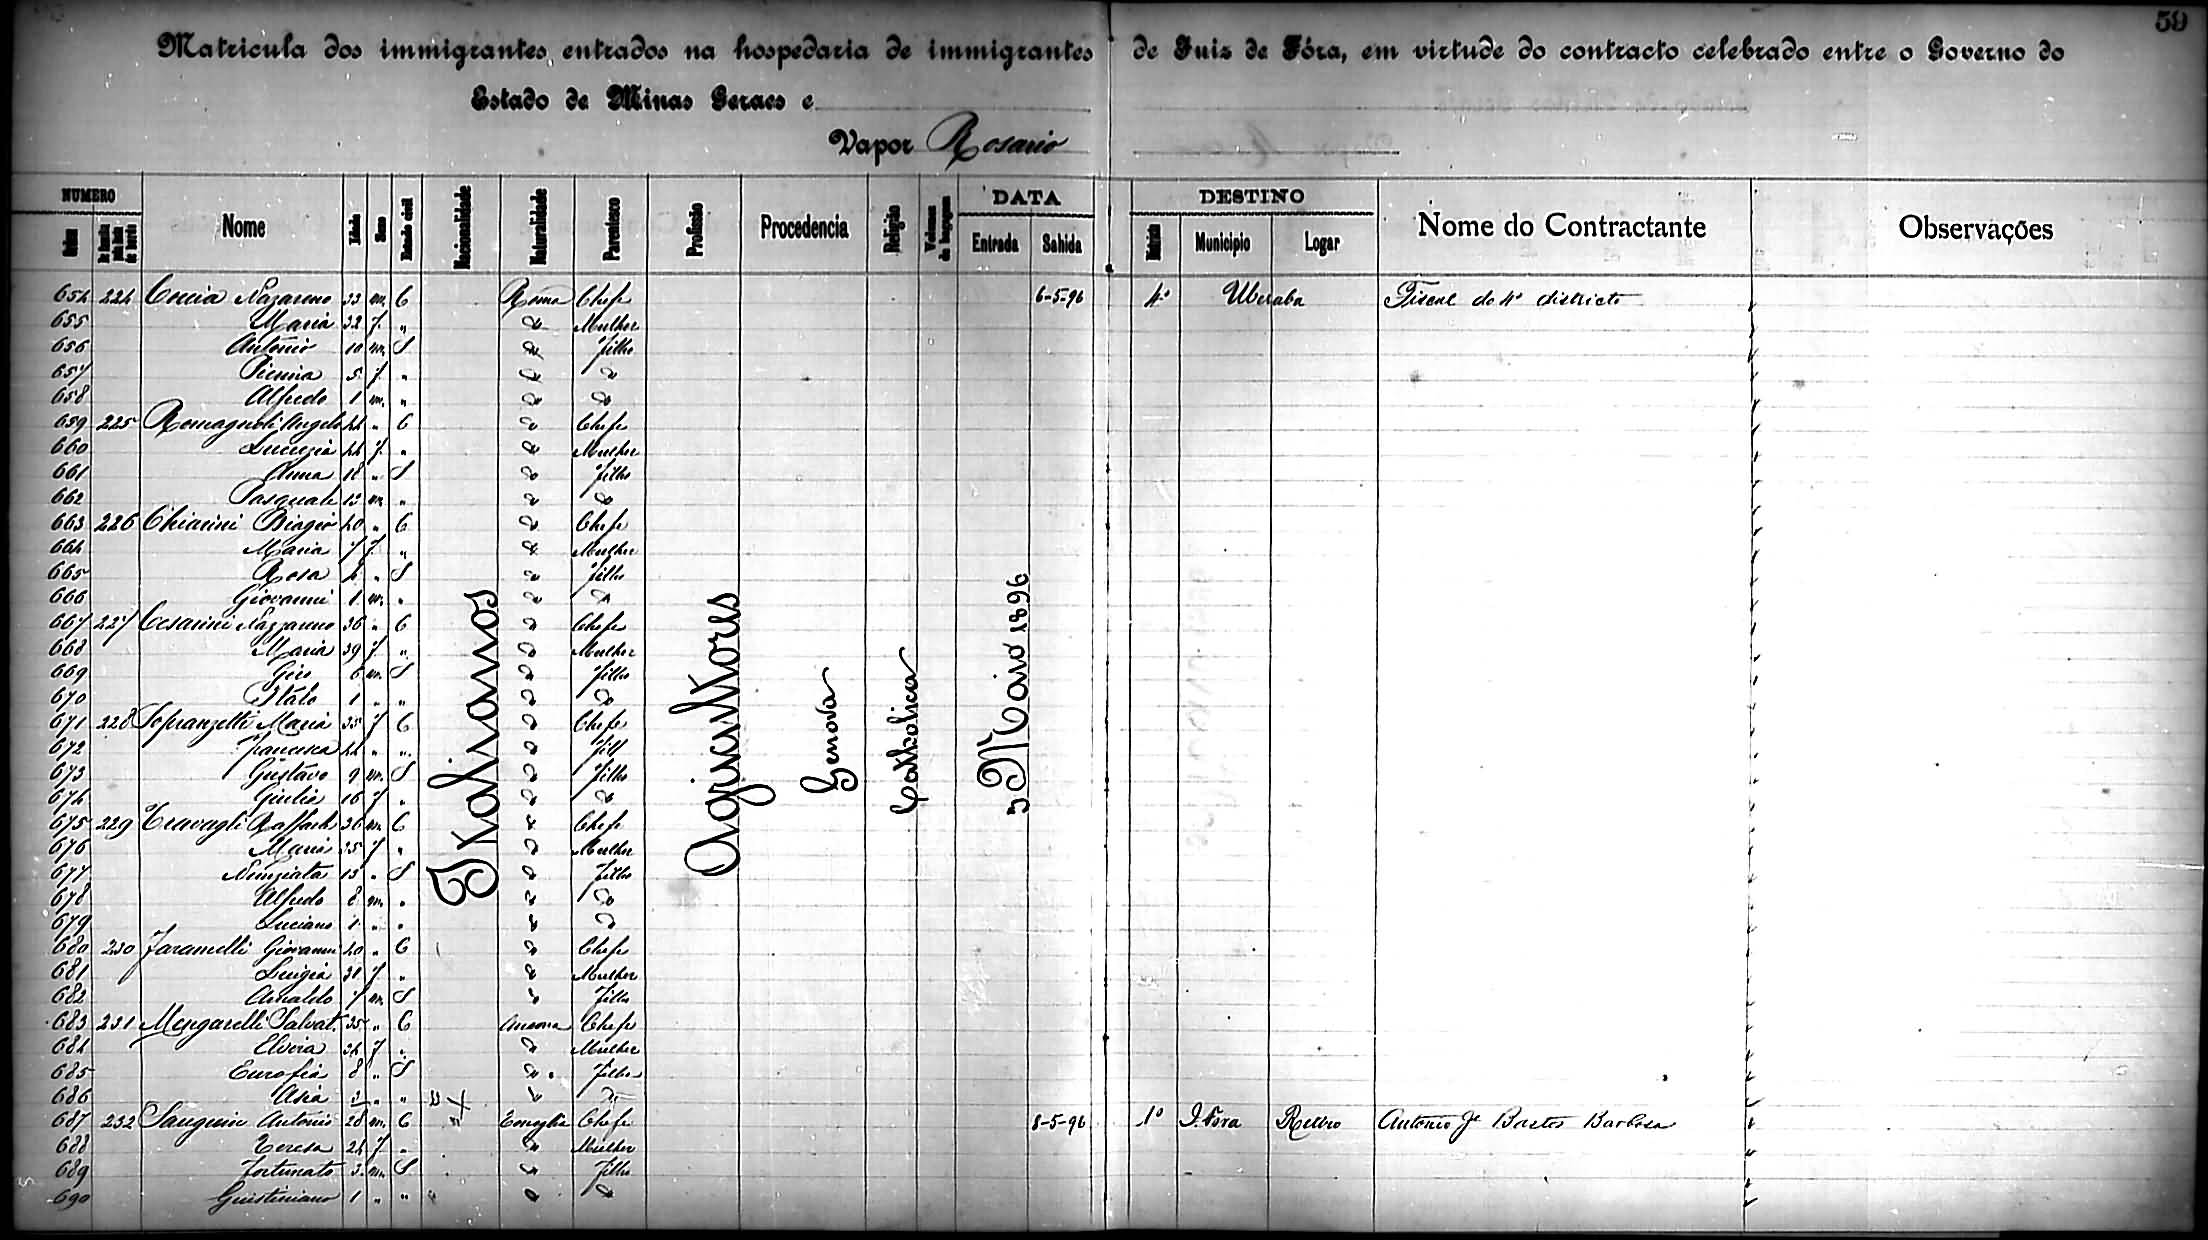 59
Matricula dos immigrantes entrados na hospedaria de immigrantes de Juiz de Fóra, em virtude do contracto celebrado entre o Governo do
Estado de Minas Geraes e
Vapor Rosario
NUMERO Nome Idade Sexo Estado civil Nacionalidade Naturalidade Parentesco Profissão Procedencia Religião Volumes de bagagem DATA DESTINO Nome do Contractante Observações
Ordem Entrada Sahida Districto Municipio Logar
Italianos
Agricultores
Genova
Catholica
3 Maio 1896
654 224 Coccia Nazareno 33 m. C Roma Chefe 6-5-96 4º Uberaba Fiscal do 4º districto
655 Maria 32 f. " do Mulher
656 Antonio 10 m. S do filho
657 Pierina 5 f. " do do
658 Alfredo 1 m. " do do
659 225 Romagnoli Angelo 44 " C do Chefe
660 Lucrezia 44 f. " do Mulher
661 Anna 18 " S do filho
662 Pasquale 12 m. " do do
663 226 Chiarini Biagio 40 " C do Chefe
664 Maria f. " do Mulher
665 Rosa 4 " S do filho
666 Giovanni 1 m. " do do
667 227 Cesarini Nazzareno 36 " C do Chefe
668 Maria 39 f. " do Mulher
669 6 m. S do filho
670 Italo 1 " " do do
671 228 Sopranzetti Maria 35 f C do Chefe
672 Francesca 44 " " do
673 Gustavo 9 m. S do filho
674 Giulia 16 f " do do
675 229 Travagli Raffaele 36 m. C do Chefe
676 Maria 35 f " do Mulher
677 Nunziata 13 " S do filho
678 Alfredo 8 m. " do do
679 Luciano 1 " " do do
680 230 Faramelli Giovanni 40 " C do Chefe
681 Luigia 31 f. " do Mulher
682 Arnaldo 7 m. S do filho
683 231 Mengarelli Salvat. 35 " C Ancona Chefe
684 Elvira 34 f " do Mulher
685 Eurofia 8 " S do filho
686 Asia 2 " " do do
687 232 Sanguin Antonio 28 m. C Chefe 8-5-96 1º J. Fora Retiro Antonio Je Bastos Barbosa
688 Teresa 24 f. " do Mulher
689 Fortunato 3 m. S do filho
690 Giustiniano 1 " " do do